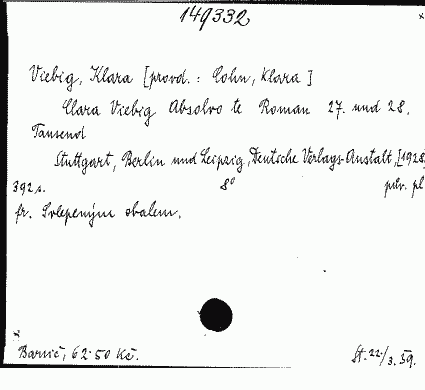 149332
Viebig, Klara [provd.: Cohn, Klara]
Clara Viebig Absolvo te Roman 27. und 28.
Tausend
Stuttgart, Berlin und Leipzig, Deutsche Verlags-Anstalt, [1928]
392 s. 8° pův. pl
fr. S vlepeným obalem.
62·50 Kč.
St. 22/3. 39.